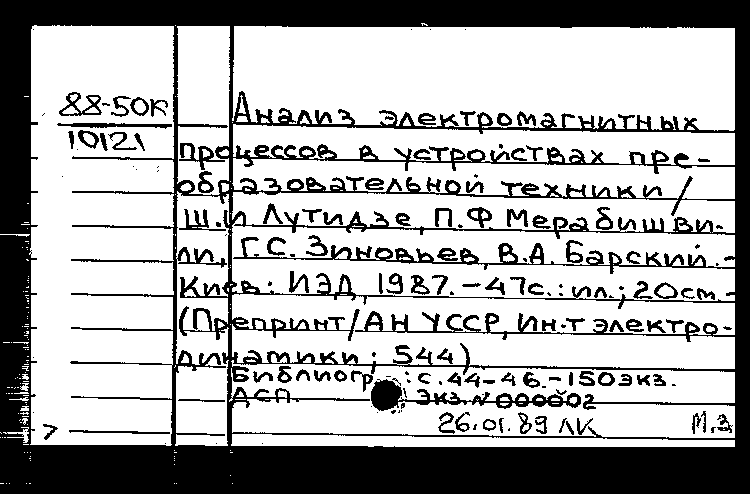 88-50К
10121
Анализ электромагнитных
процессов в устройствах пре-
образовательной техники /
Ш.И Лутидзе, П.Ф Мерабишви-
ли, Г.С. Зиновьев, В.А. Барский.-
Киев: ИЭД, 1987.-47с.: ил.; 20см.-
(Препринт/АН УССР, Ин-т электро-
динамики; 544)
Библиогр.: с. 44-46.-150экз.
ДСП. Экз.№000002
26.01.89 ЛК М.З
7